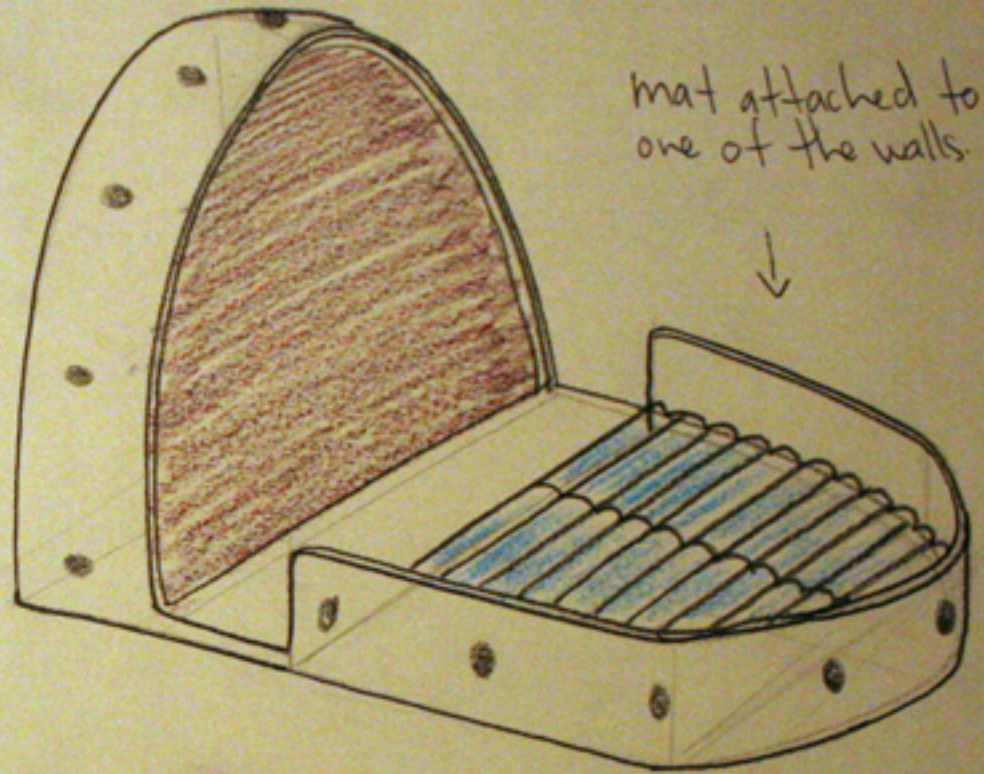 mat attached to
one of the walls.